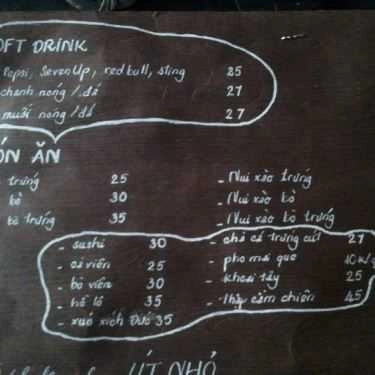 OFT DRINK
Pepsi, SevenUp, redbull, sting 25
chanh nóng/đá 27
muối nóng/đá 27
ÓN ĂN
trứng 25
bò 30
bò trứng 35
- Nui xào trứng
- Nui xào bò
- Nui xào bò trứng
- sushi 30
- cá viên 25
- bò viên 30
- hồ lô 35
- xúc xích Đức 35
- chả cá trứng cút 27
- pho mai que 10K/
- khoai tây 25
- cẩm chiên 45
ÚT NHỎ